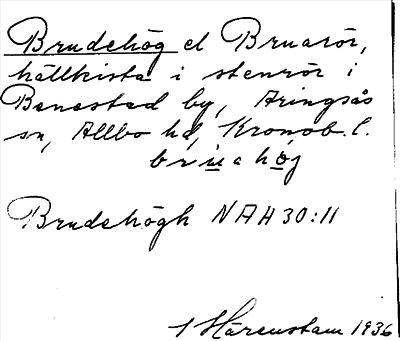 Brudehög el Bruarör,
hällkista i stenrör i
Benestad by, Aringsås
sn, Allbo hd, Kronob. l.
bruahög
Brudehögh NAH 30:11
1 Härenstam 1936